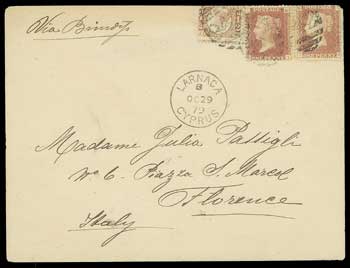 Via Brindisi
ONE PENNY
ONE PENNY
LARNACA
B
OC 29
79
CYPRUS
Madame Julia Passigli
No 6. Piazza S. Marco
Florence
Italy